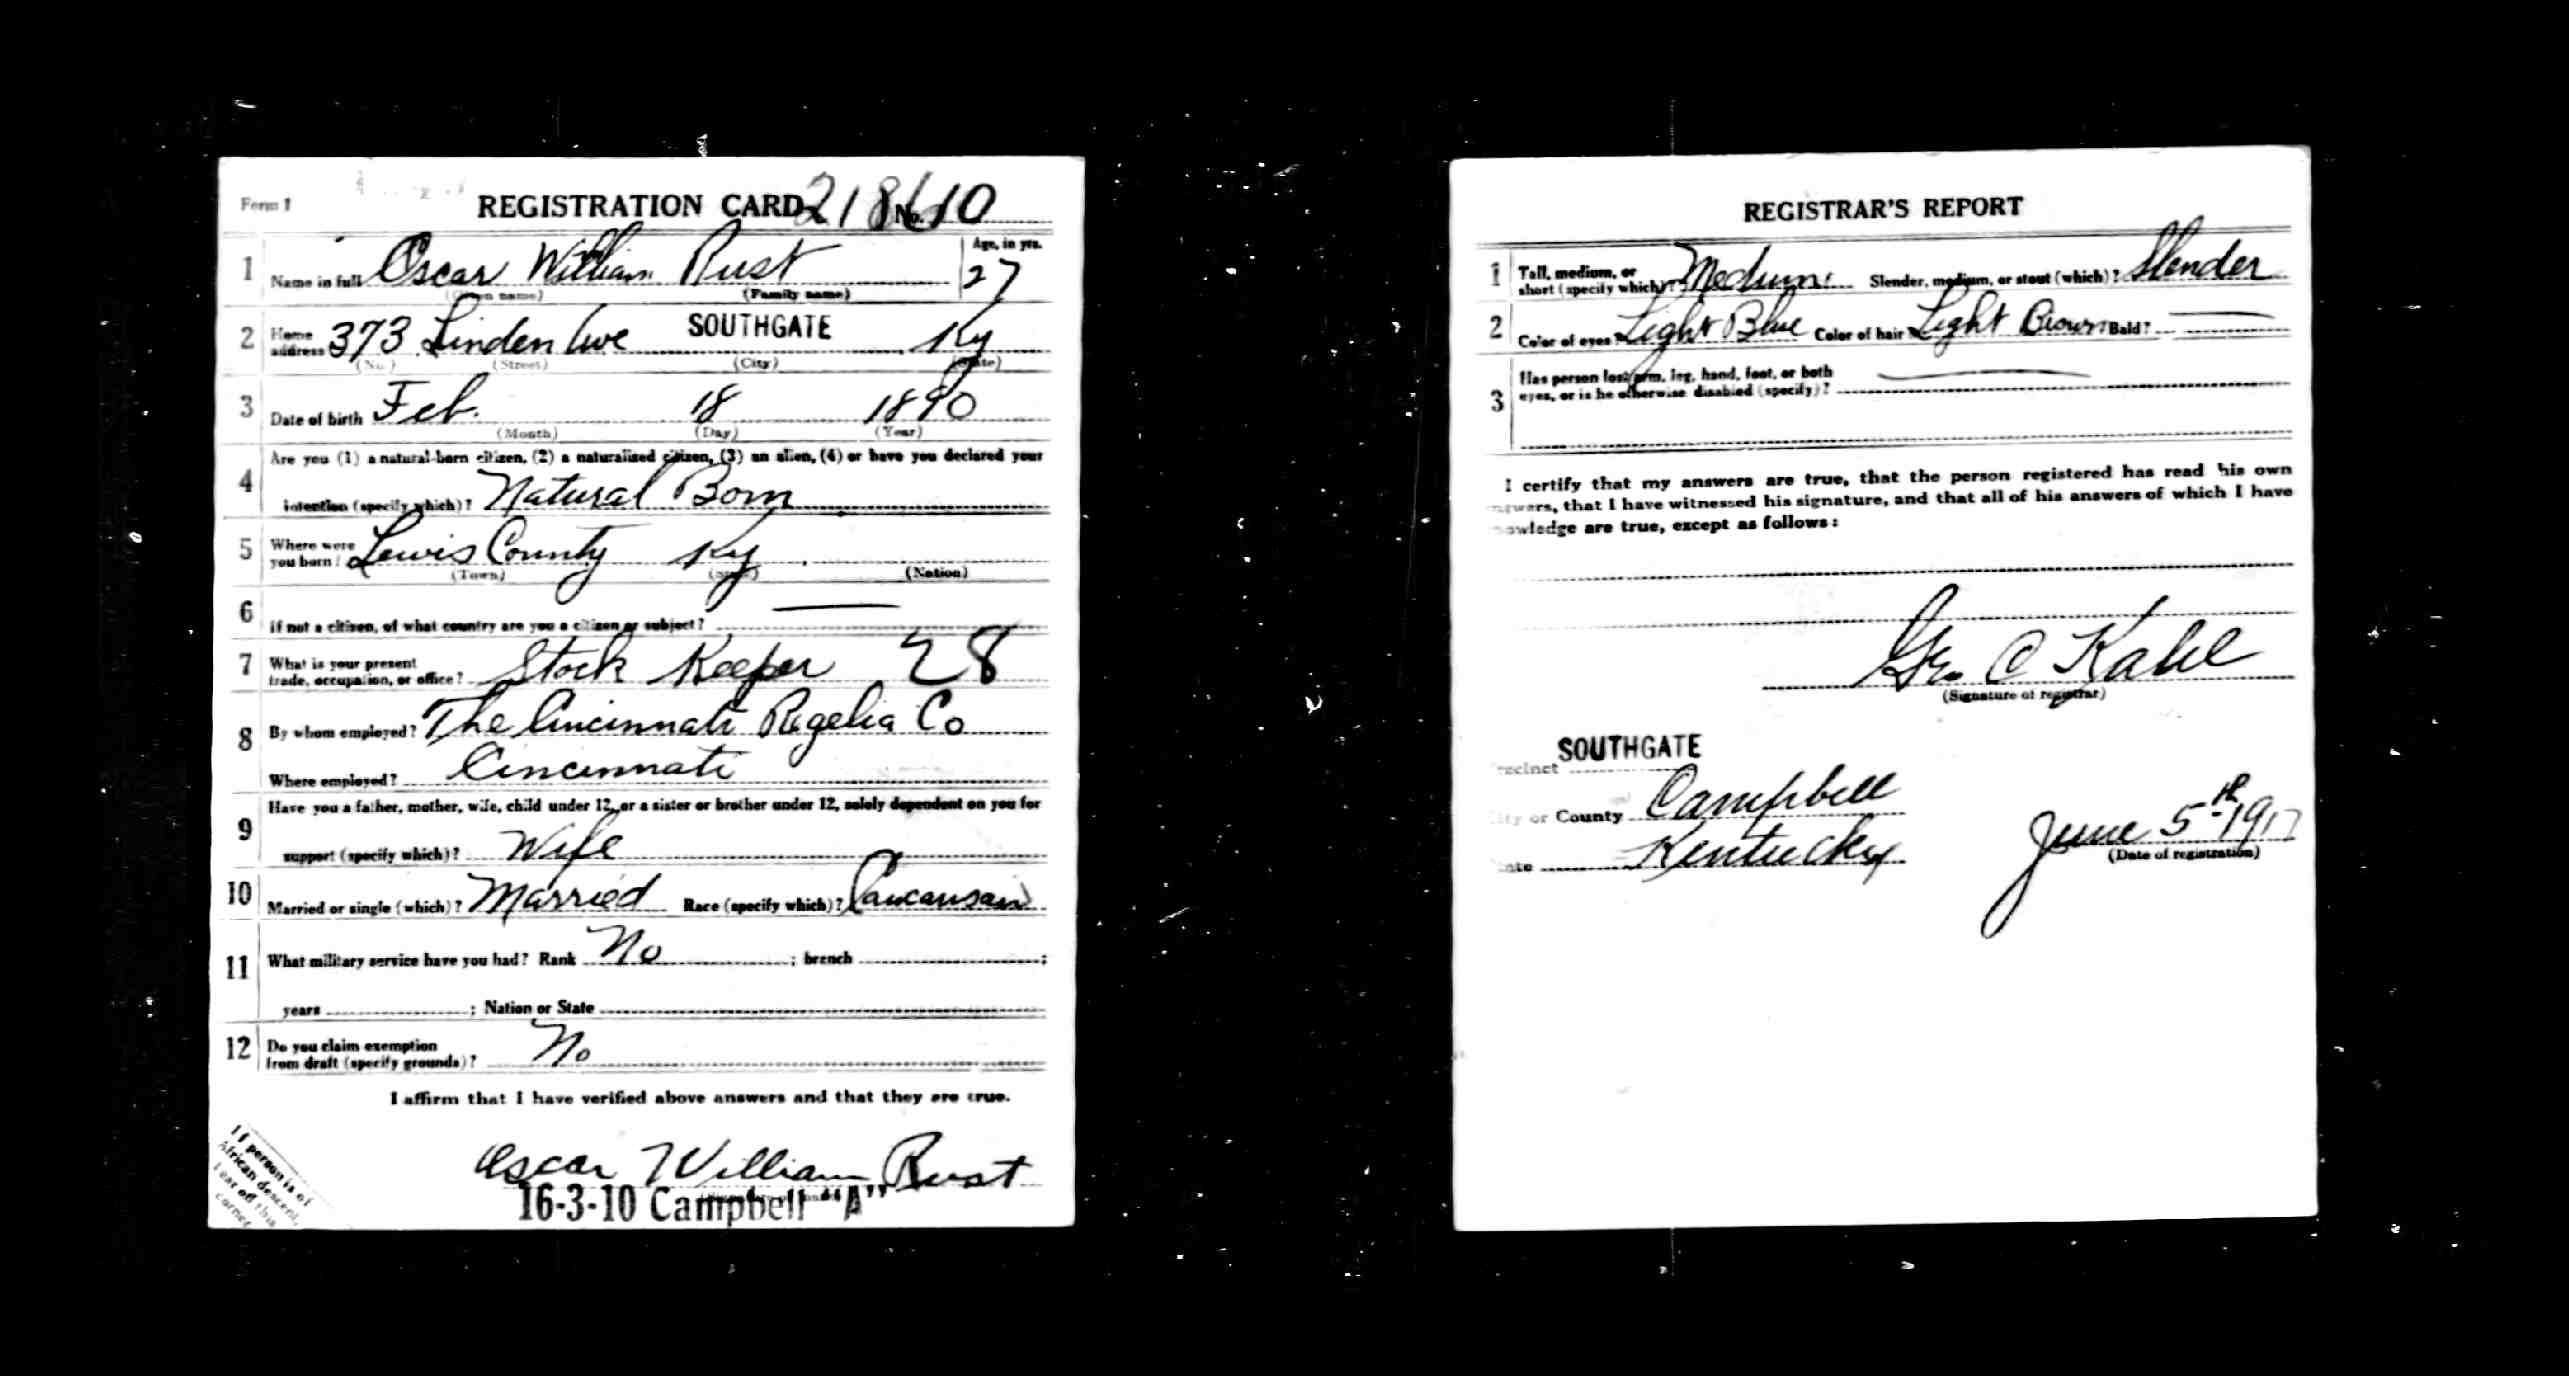 Form 1
REGISTRATION CARD 218 No. 10
1 Name in full Oscar William Rust Age, in yrs. 27
(Given name) (Family name)
2 Home address 373 Linden Ave SOUTHGATE Ky
(No.) (Street) (City) (State)
3 Date of birth Feb. 18 1890
(Month) (Day) (Year)
4 Are you (1) a natural-born citizen, (2) a naturalized citizen, (3) an alien, (4) or have you declared your
intention (specify which)? Natural Born
5 Where were you born? Lewis County Ky
(Town) (State) (Nation)
6 If not a citizen, of what country are you a citizen or subject?
7 What is your present trade, occupation, or office? Stock Keeper 28
8 By whom employed? The Cincinnati Regelia Co
Where employed? Cincinnati
9 Have you a father, mother, wife, child under 12, or a sister or brother under 12, solely dependent on you for
support (specify which)? Wife
10 Married or single (which)? Married Race (specify which)? Caucausan
11 What military service have you had? Rank No ; branch ;
years ; Nation or State
12 Do you claim exemption from draft (specify grounds)? No
I affirm that I have verified above answers and that they are true.
Oscar William Rust
16-3-10 Campbell "A"
If person is of
African descent,
tear off this
corner
REGISTRAR'S REPORT
1 Tall, medium, or short (specify which)? Medium Slender, medium, or stout (which)? Slender
2 Color of eyes? Light Blue Color of hair? Light Brown Bald?
3 Has person lost arm, leg, hand, foot, or both
eyes, or is he otherwise disabled (specify)?
I certify that my answers are true, that the person registered has read his own
answers, that I have witnessed his signature, and that all of his answers of which I have
knowledge are true, except as follows:
Geo C Kahl
(Signature of registrar)
Precinct SOUTHGATE
City or County Campbell
State Kentucky
June 5th 1917
(Date of registration)